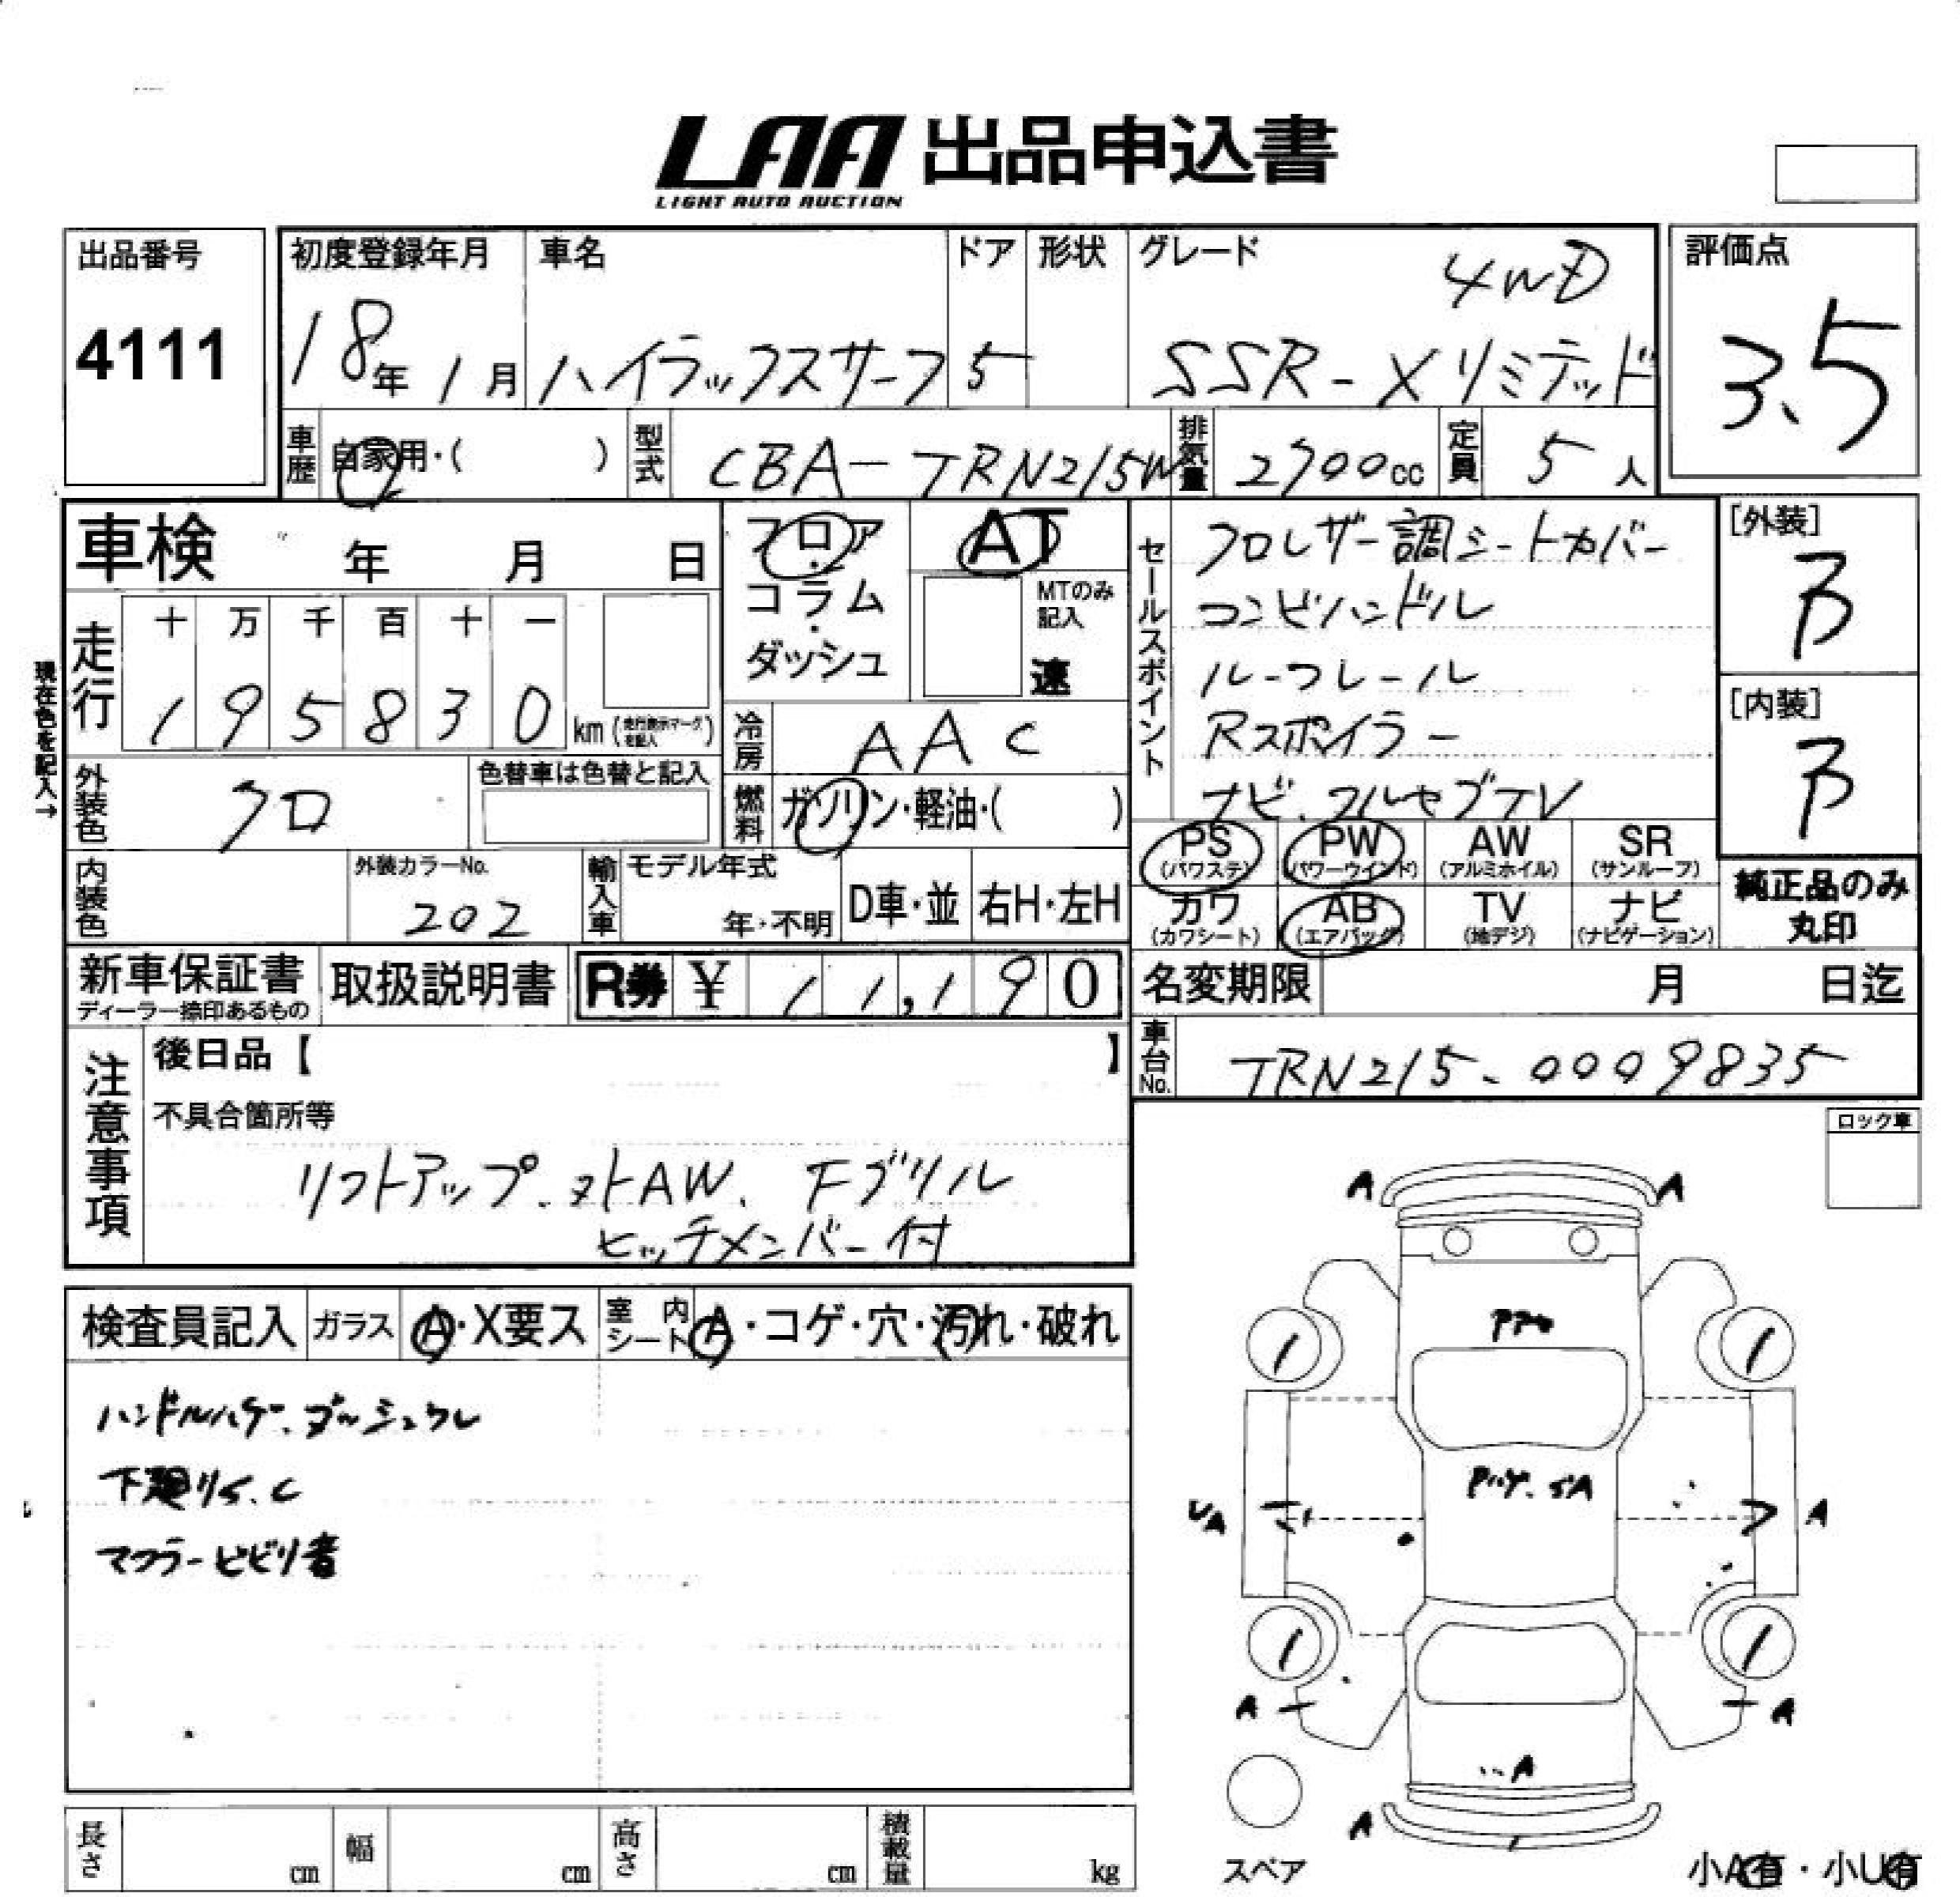 LAA 出品申込書
LIGHT AUTO AUCTION
出品番号
4111
初度登録年月
18年 1月
車名
ハイラックスサーフ
ドア
5
形状
グレード
4WD
SSR-Xリミテッド
評価点
3.5
車歴 自家用・( )
型式 CBA-TRN215W
排気量 2700cc
定員 5人
車検 年 月 日
フロア・コラム・ダッシュ
AT
MTのみ記入
速
セールスポイント
クロレザー調シートカバー
コンビハンドル
ルーフレール
Rスポイラー
ナビ、フルセグTV
[外装]
B
[内装]
B
現在色を記入→
走行
十 万 千 百 十 一
1 9 5 8 3 0 km (走行表示マークを記入)
冷房 AAC
外装色 クロ
色替車は色替と記入
燃料 ガソリン・軽油・( )
PS (パワステ)
PW (パワーウインド)
AW (アルミホイル)
SR (サンルーフ)
内装色
外装カラーNo.
202
輸入車
モデル年式
年・不明
D車・並
右H・左H
カワ (カワシート)
AB (エアバッグ)
TV (地デジ)
ナビ (ナビゲーション)
純正品のみ丸印
新車保証書
ディーラー捺印あるもの
取扱説明書
R券 ¥ 11,190
名変期限 月 日迄
車台No. TRN215-0009835
注意事項
後日品【 】
不具合箇所等
リフトアップ、ヌトAW、Fグリル
ヒッチメンバー付
ロック車
検査員記入
ガラス A・X要ス
室内シート A・コゲ・穴・汚れ・破れ
ハンドルハゲ、ダッシュワレ
下廻りS.C
マフラービビリ音
A A
1 1
UA A
1 1
A A
A
A
スペア
長さ cm
幅 cm
高さ cm
積載量 kg
小A有・小U有